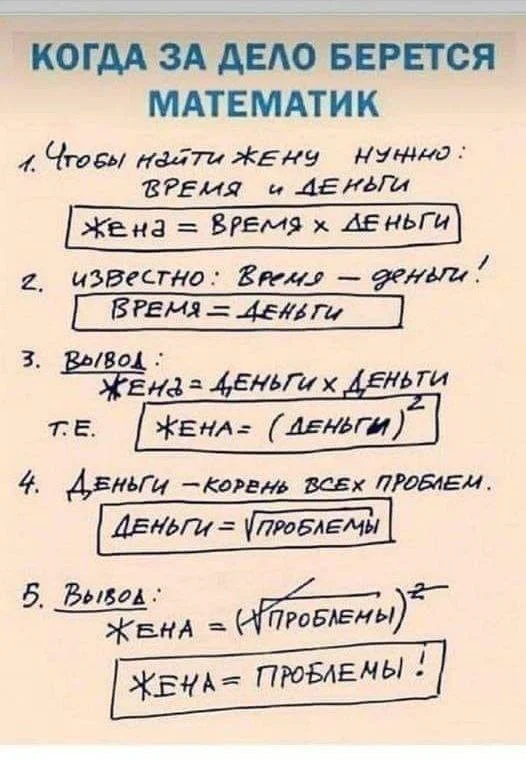 КОГДА ЗА ДЕЛО БЕРЕТСЯ
МАТЕМАТИК
1. Чтобы найти жену нужно:
время и деньги
жена = время x деньги
2. известно: Время — деньги!
время = деньги
3. Вывод:
жена = деньги x деньги
т.е. жена = (деньги)²
4. Деньги – корень всех проблем.
деньги = √проблемы
5. Вывод:
жена = (√проблемы)²
жена = проблемы!